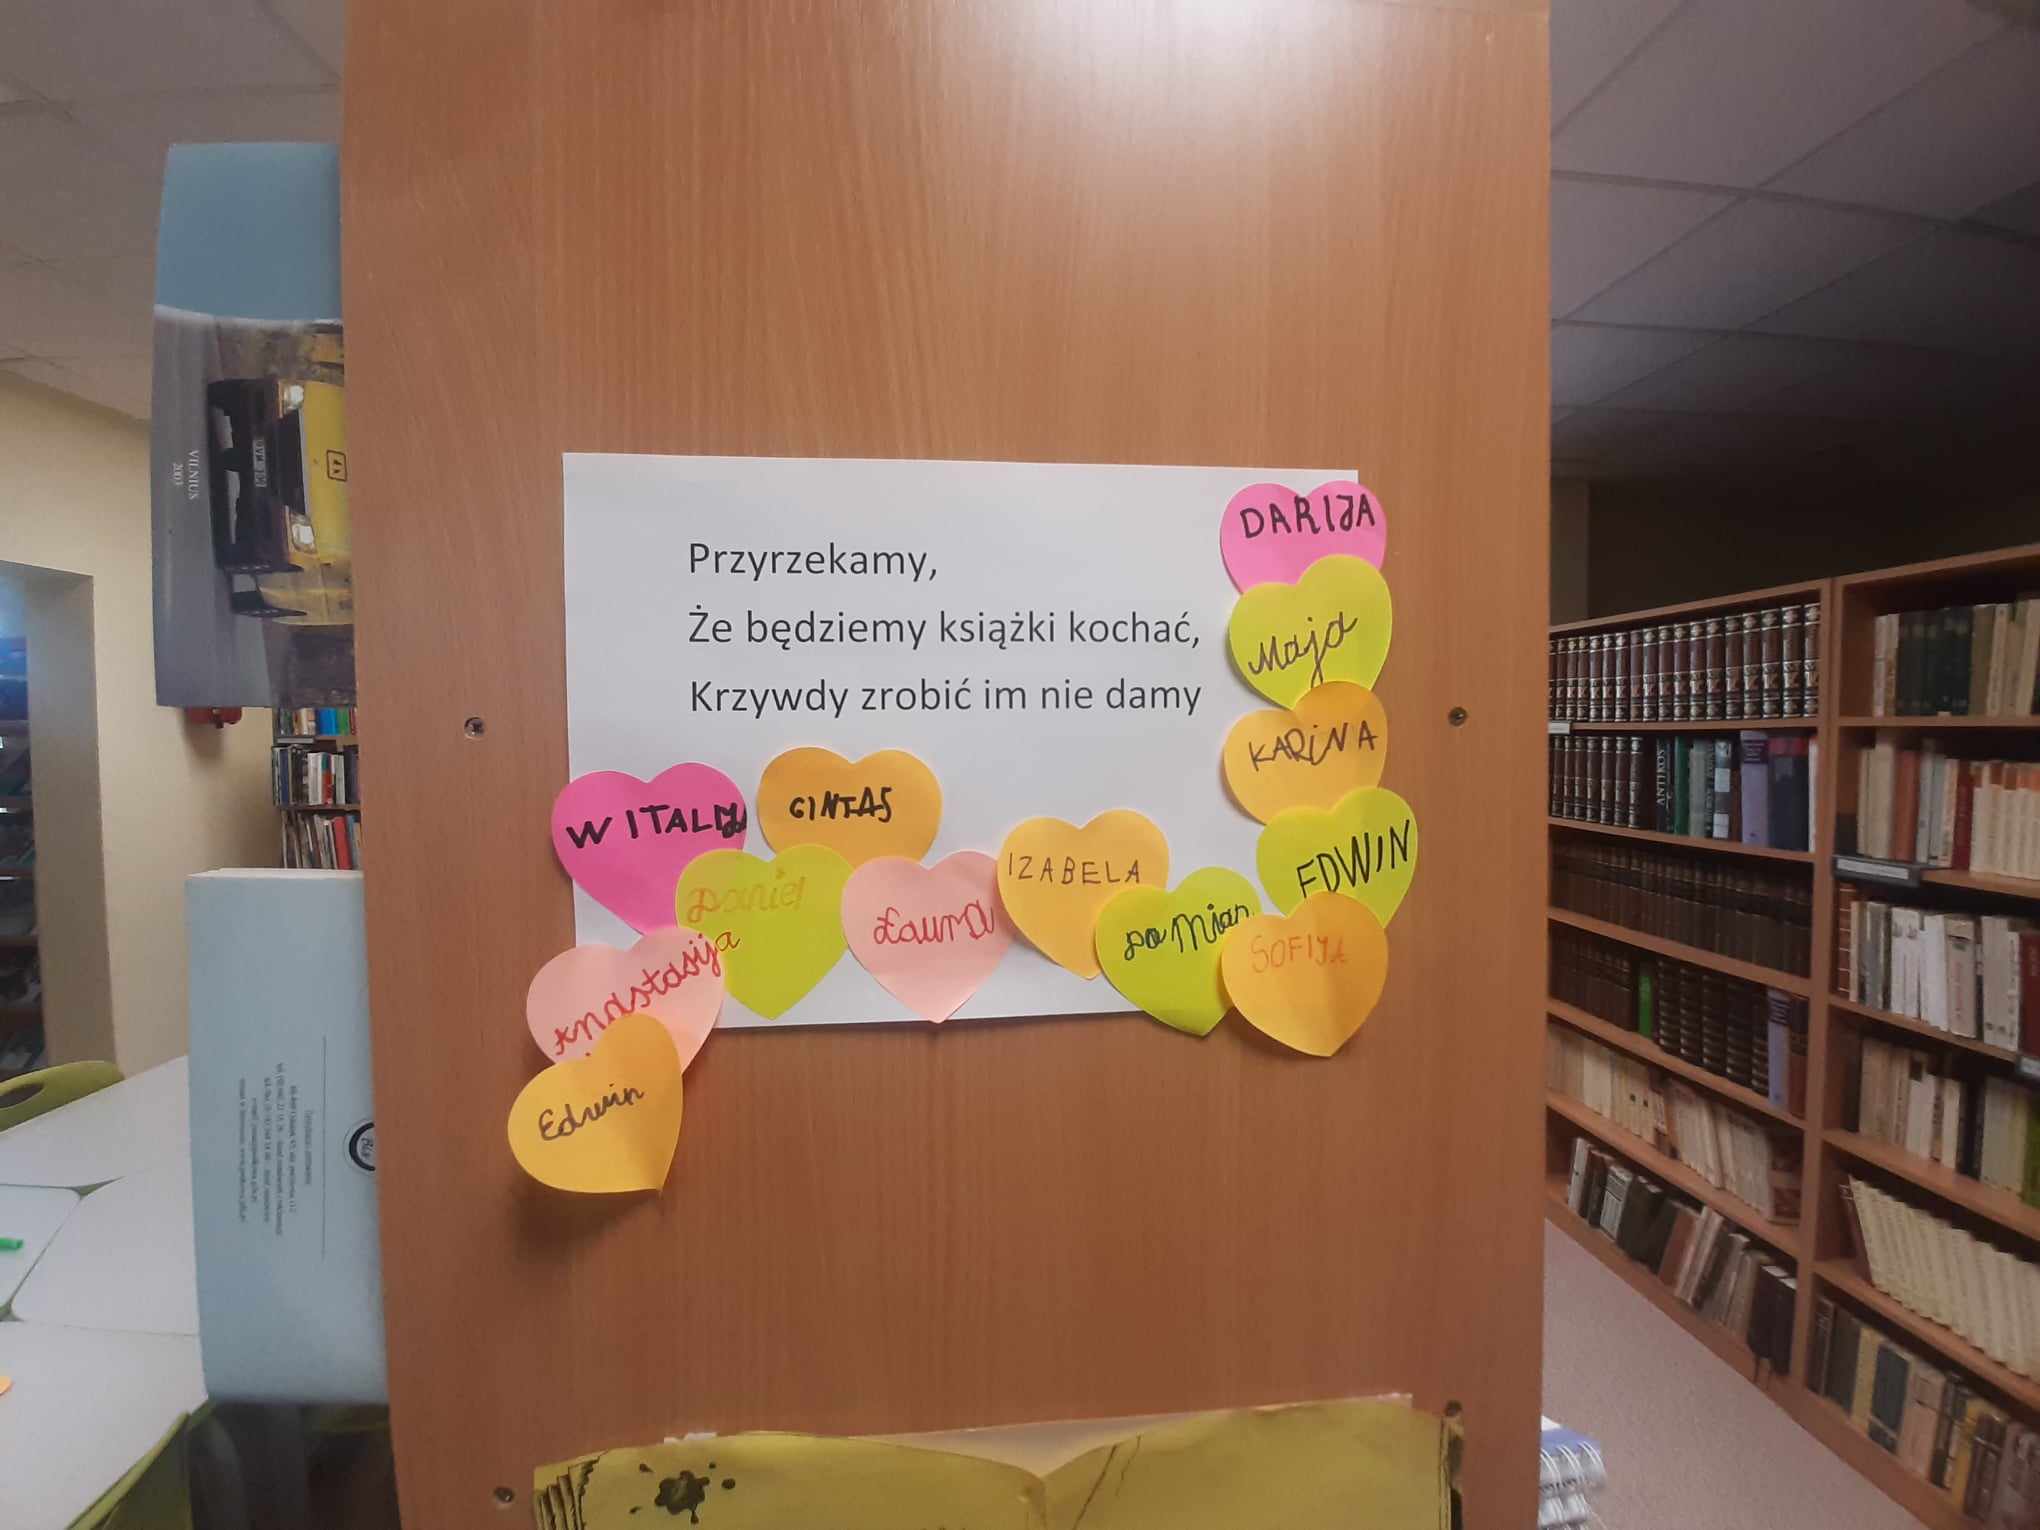 Przyrzekamy,
Że będziemy książki kochać,
Krzywdy zrobić im nie damy
DARIJA
Maja
KARINA
EDWIN
SOFIJA
WITALIJ
GINTAS
Daniel
Laura
IZABELA
Damian
Anastasija
Edwin
VILNIUS
2003
ANTIKOS